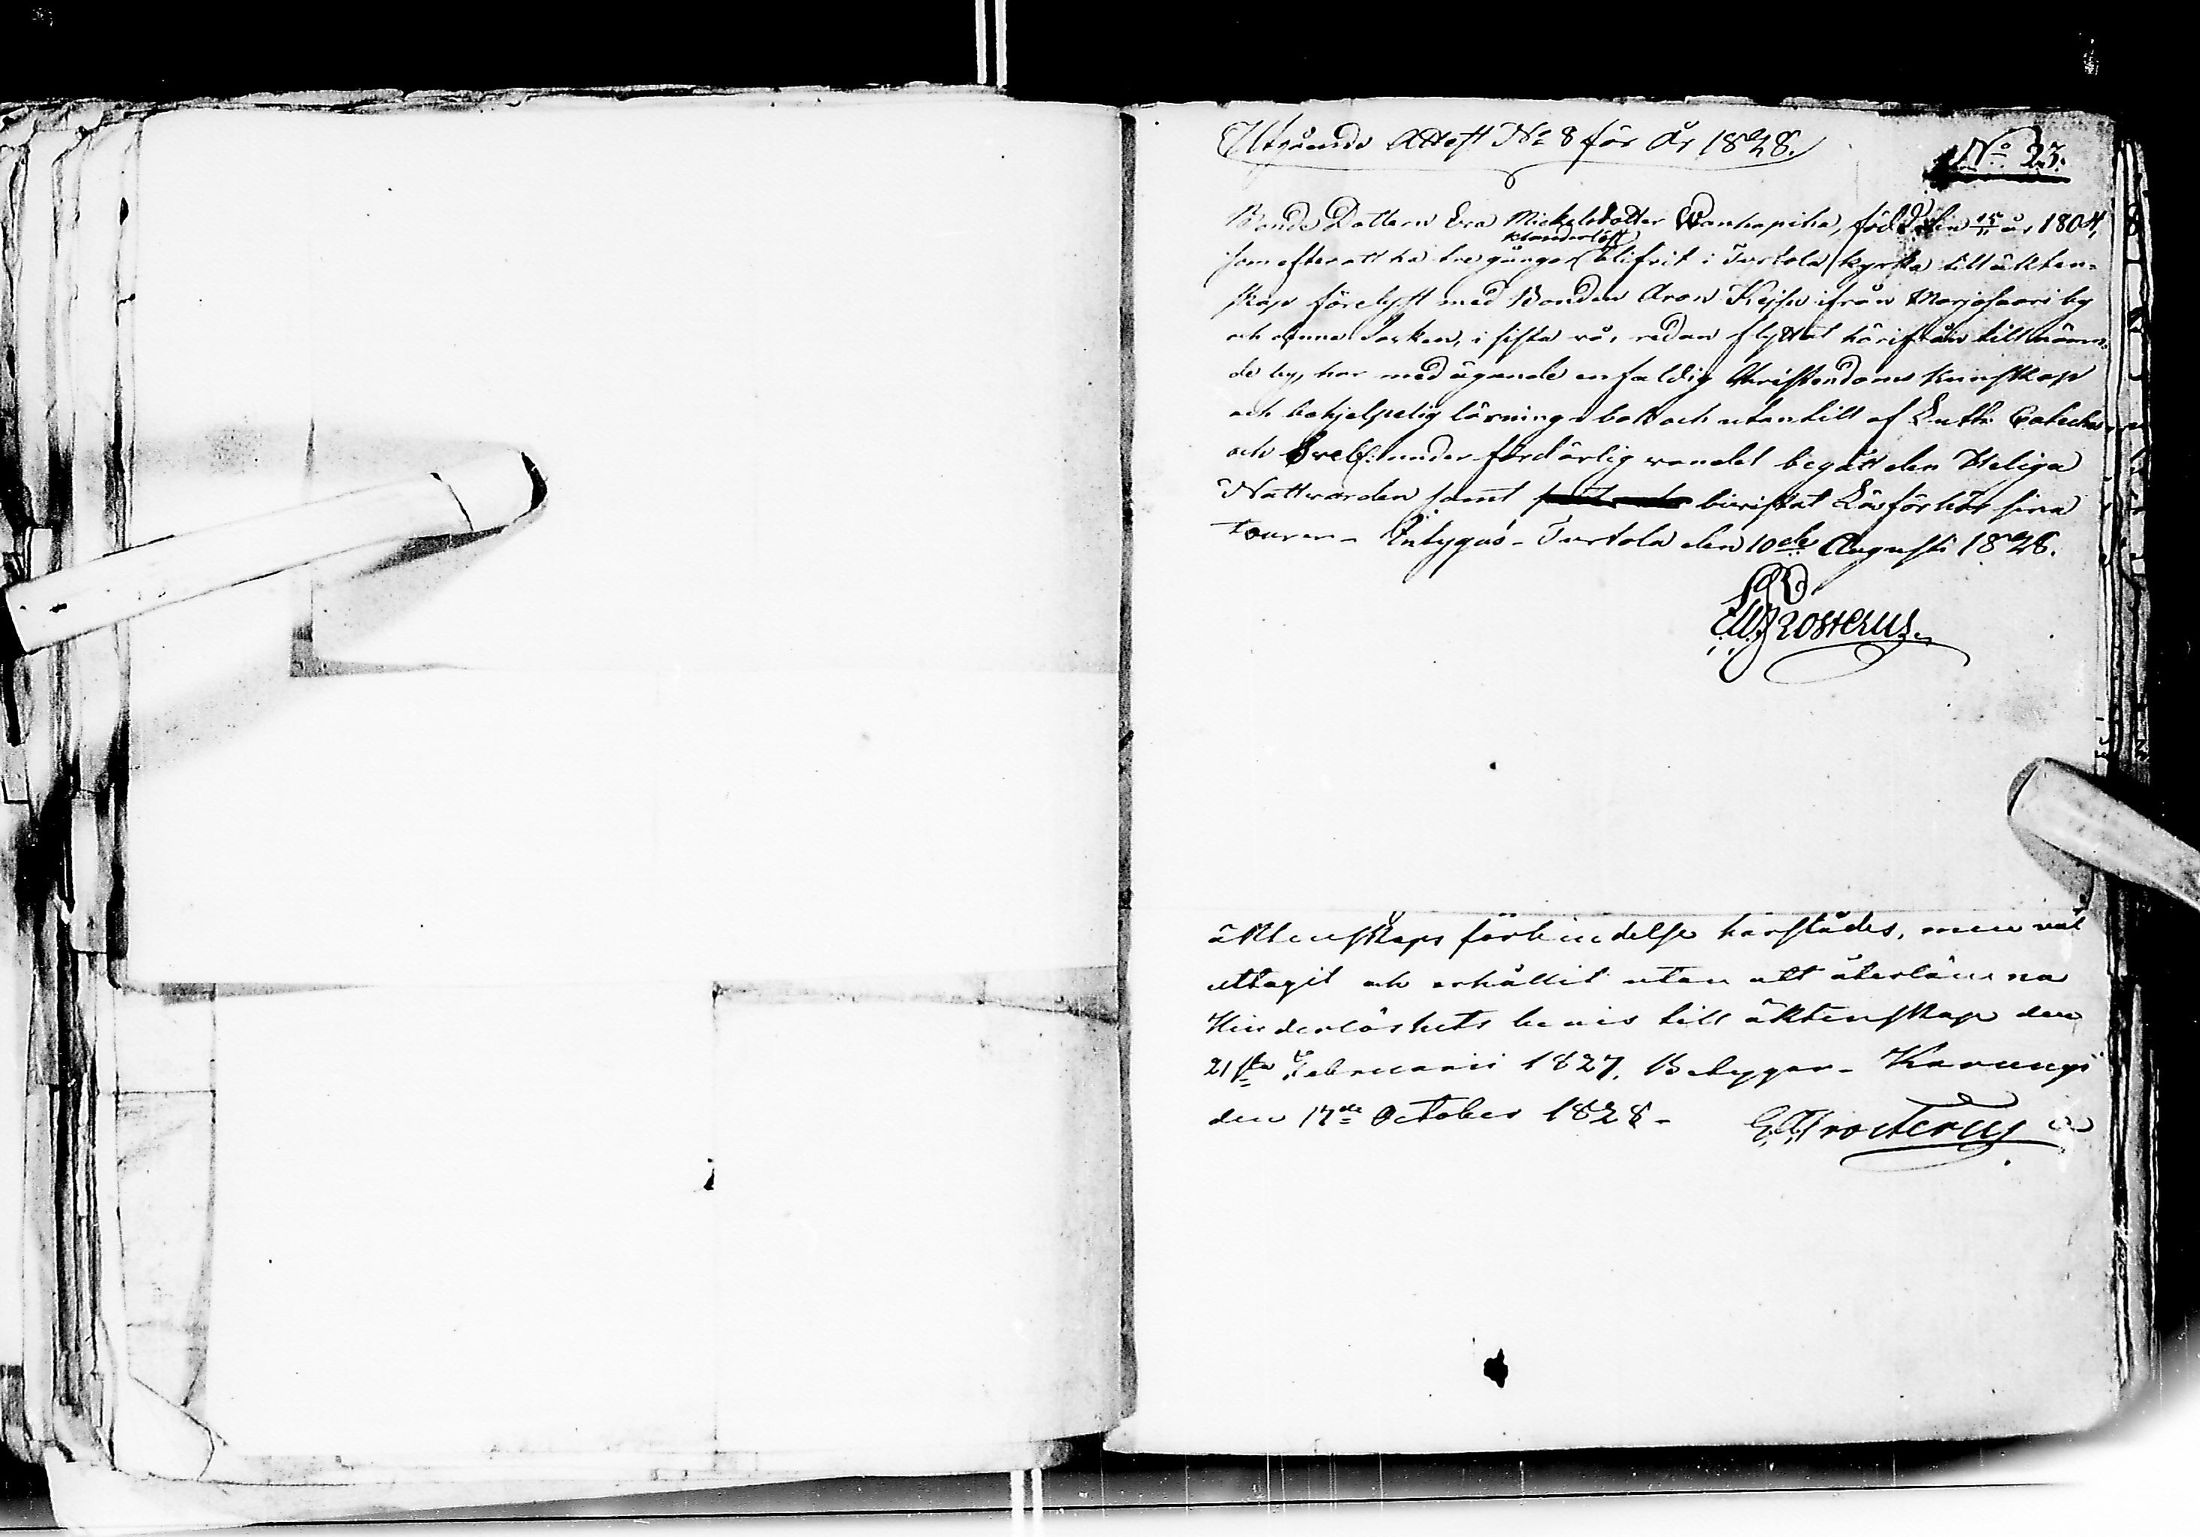 Utgående Attest No 8 för År 1828.
No 23.
Bonde Dottern Eva Mickelsdotter Wanhapiha, född den 15/11 år 1804,
klanderlöst
som efter att ha tre gånger blifvit i Turtola kyrka till äkten-
skap förelyst med Bonden Aron Kejsu ifrån Marjosaari by
och denna Socken, i sista vår, redan flyttat härifrån till nämn-
de by, har med ägande enfaldig Christendoms kunskap
och behjelpelig läsning i bok och utantill af Luth: Catechis
och under ärlig vandel begått den Heliga
Nattvarden samt bivistat Läsförhör sina
tourer - Intygas - Turtola den 10de Augusti 1828.
Frosterus.
äktenskaps förbindelse härstädes, men väl
uttagit och erhållit utan att återlämna
Hinderlöshets bevis till äktenskap den
21sta Februarii 1827, Betygar - Karungi
den 17de October 1828 - E. Frosterus